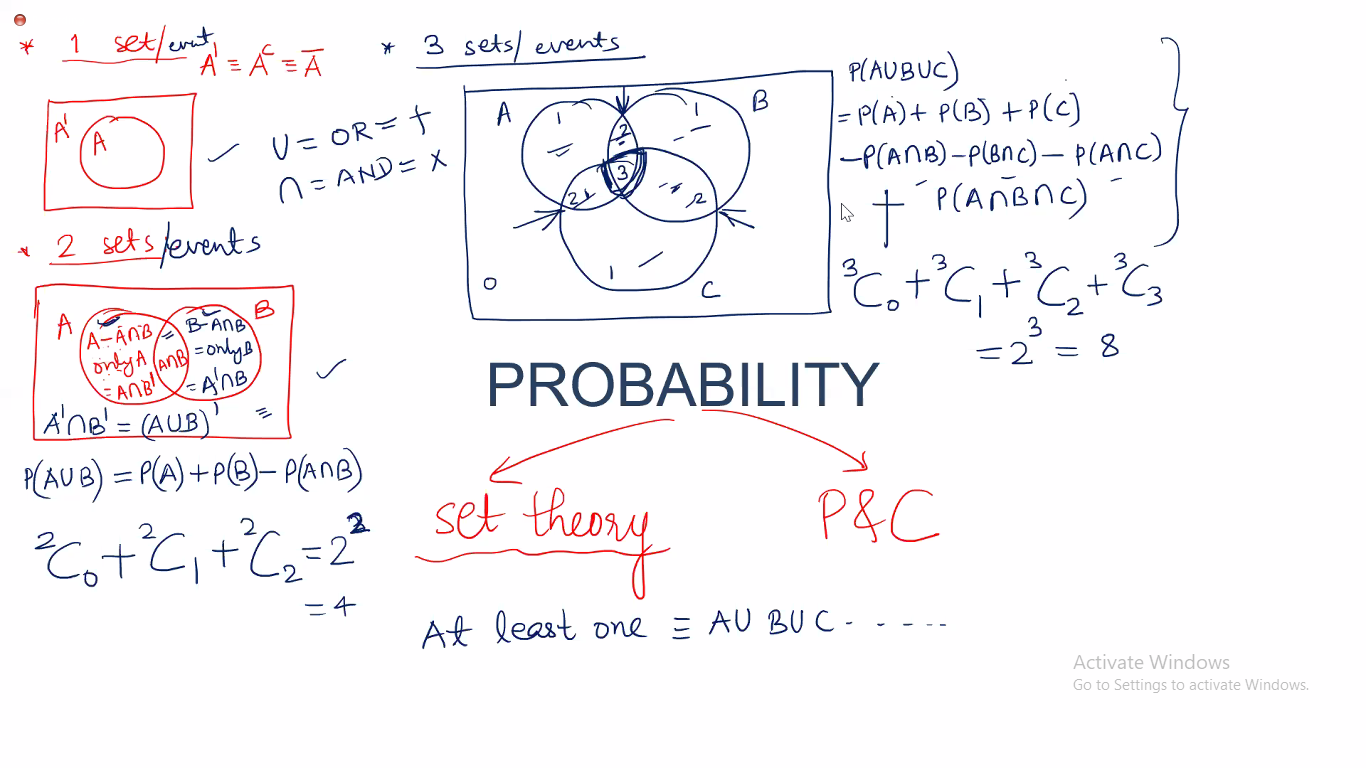 * 1 set/event
A' ≡ Aᶜ ≡ A̅
A'
A
∪ = OR = +
∩ = AND = ×
* 2 sets/events
A
B
A – A∩B
only A
= A∩B'
A∩B
= B – A∩B
= only B
= A'∩B
A'∩B' = (A∪B)'
P(A∪B) = P(A) + P(B) – P(A∩B)
²C₀ + ²C₁ + ²C₂ = 2²
= 4
* 3 sets/events
A
B
1
1
2
3
2
2
1
0
C
P(A∪B∪C)
= P(A) + P(B) + P(C)
– P(A∩B) – P(B∩C) – P(A∩C)
+ P(A∩B∩C)
³C₀ + ³C₁ + ³C₂ + ³C₃
= 2³ = 8
PROBABILITY
set theory
P&C
At least one ≡ A∪B∪C - - - - -
Activate Windows
Go to Settings to activate Windows.